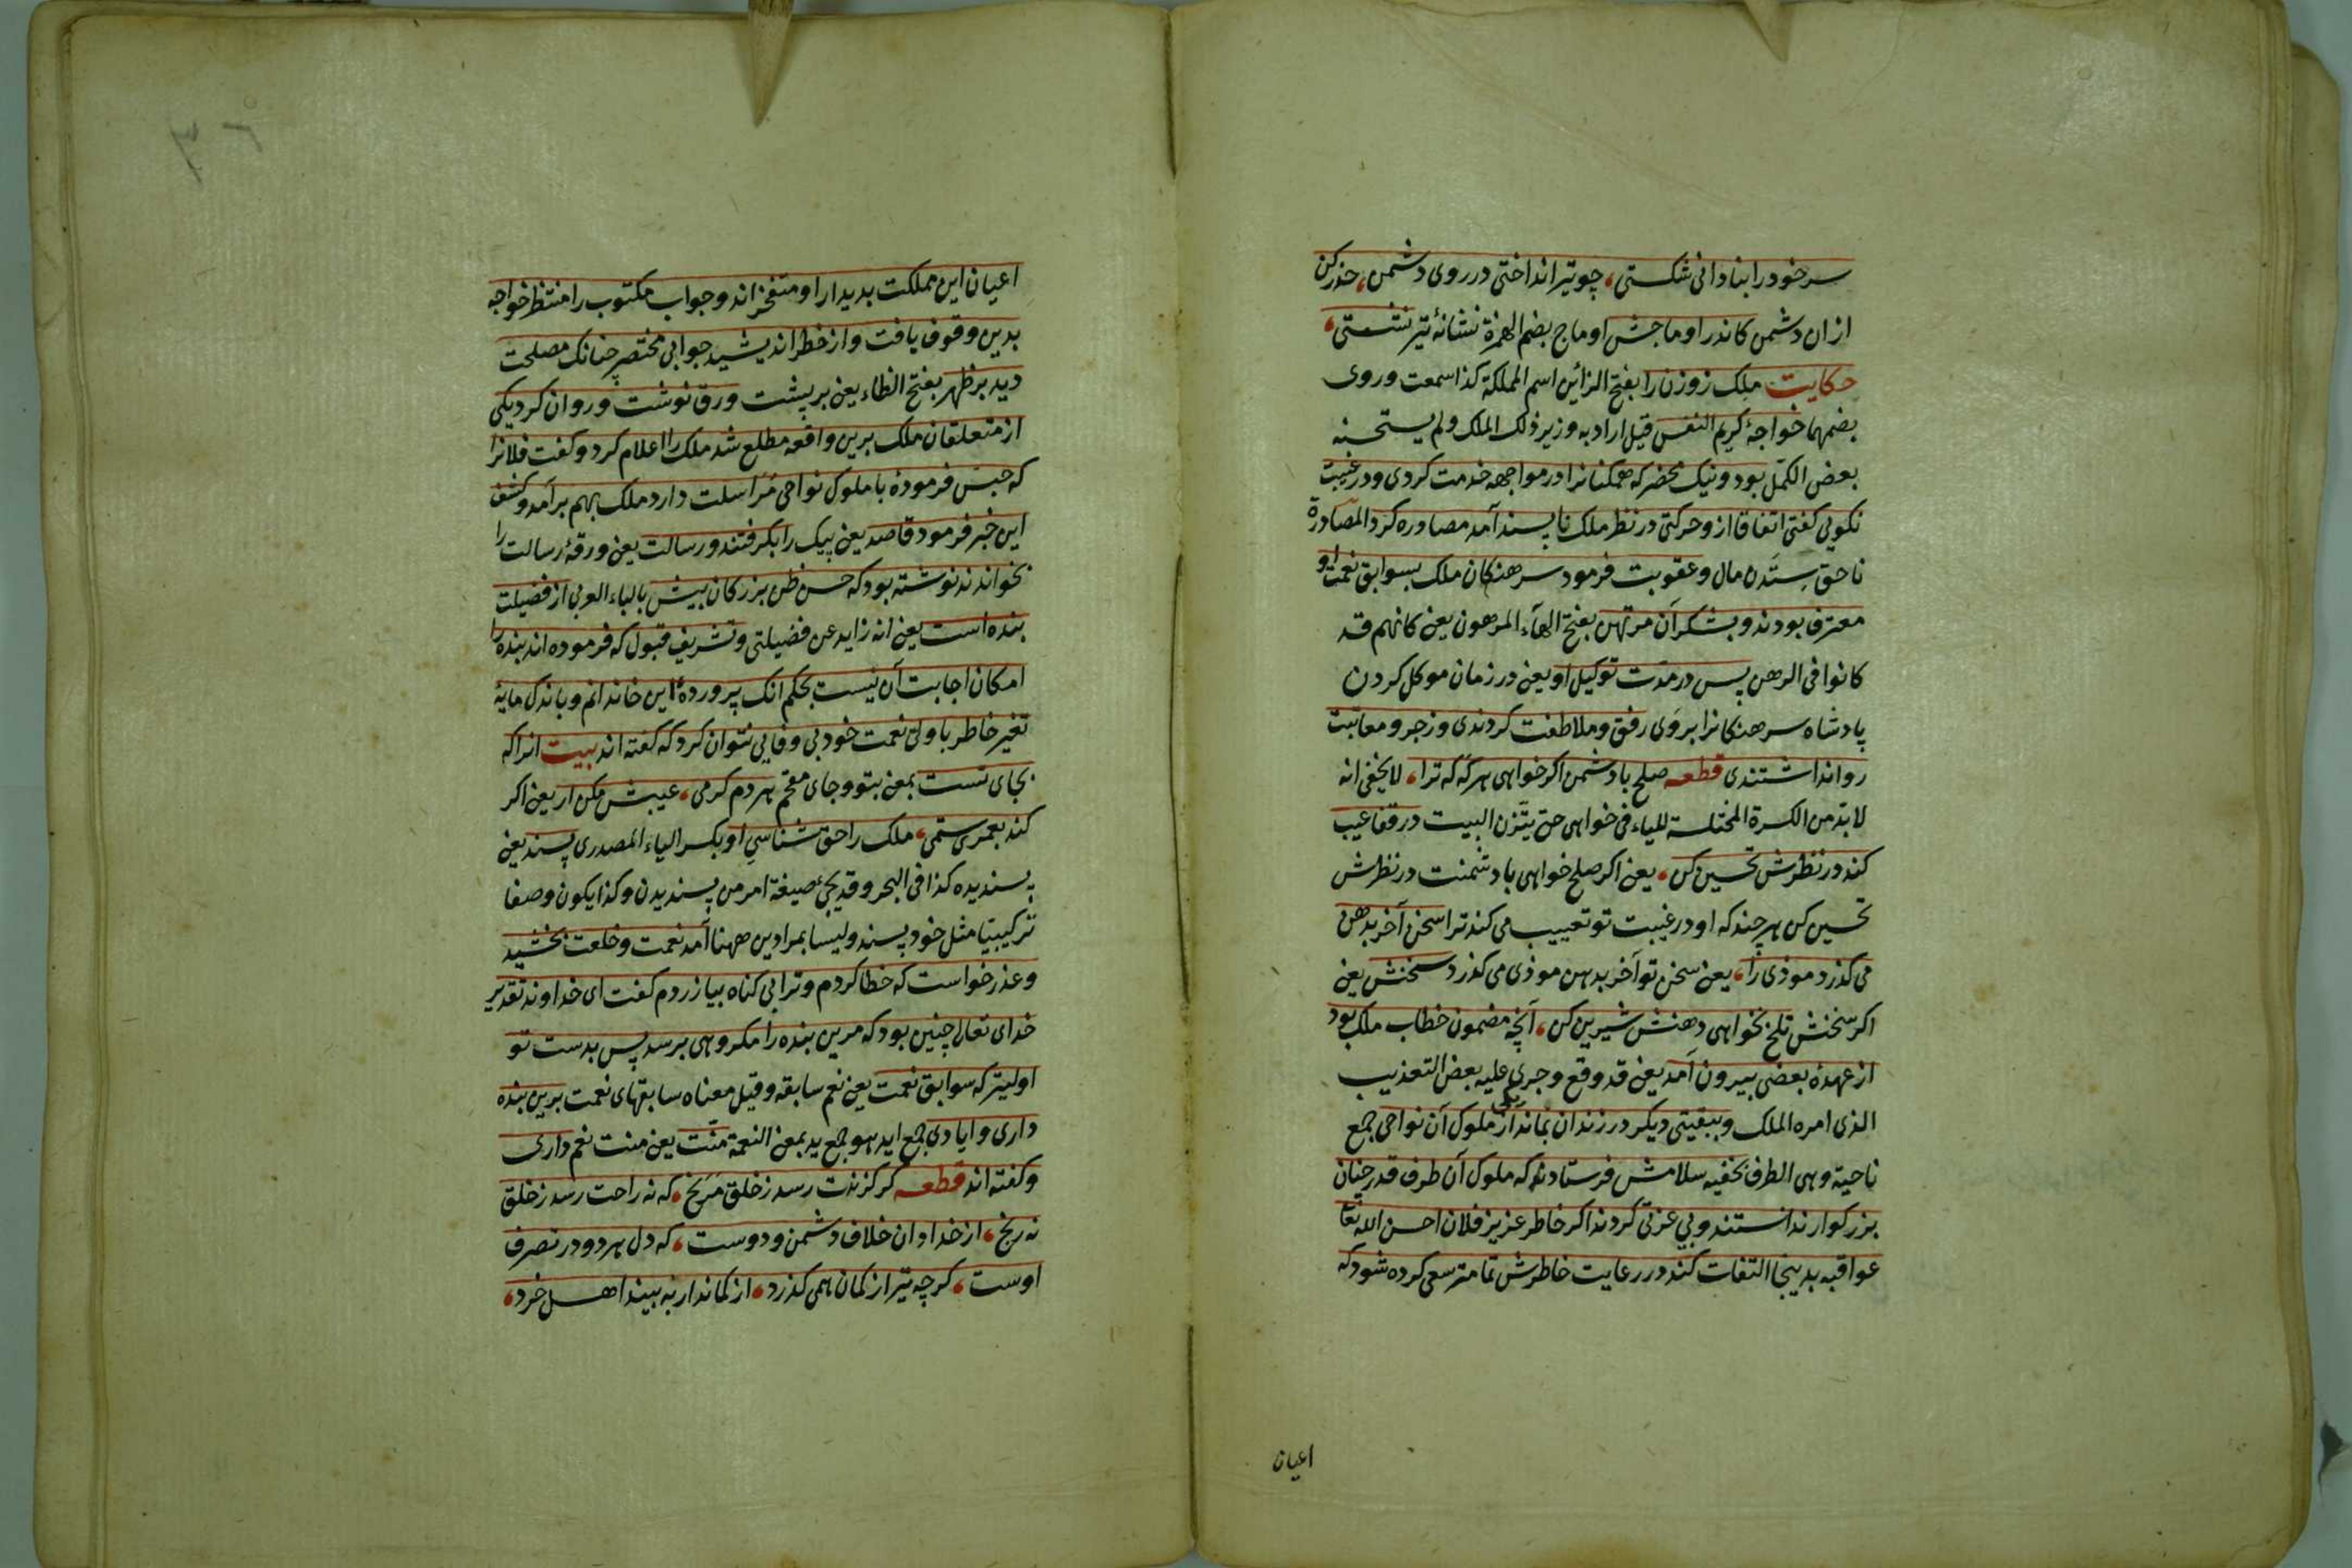 سر خود را بنادانی شکستی، چو تیر انداختی در روی دشمن، حذر کن
از ان دشمن کاندر اوماجش اوماج بضم الهمزة نشانهٔ تیر نشستی،
حکایت ملک زوزن را بفتح الزائین اسم المملکة کذا سمعت وروی
بضمهما خواجهٔ کریم النفس قیل اراد به وزیر ذلک الملک ولم یستحسنه
بعض الکمّل بود ونیک محضر که همکنانرا در مواجهه خدمت کردی ودر غیبت
نکویی کفتی اتفاقا ازو حرکتی در نظر ملک ناپسند آمد مصادره کرد المصادرة
ناحق ستدن مال وعقوبت فرمود سرهنکان ملک بسوابق نعمت او
معترف بودند وبشکر آن مرتهن بفتح الهآء المرهون یعنی کانهم قد
کانوا فی الرهن پس در مدّت توکیل او یعنی در زمان موکل کردن
پادشاه سرهنکانرا بروی رفق وملاطفت کردندی وزجر ومعاتبت
روا نداشتندی قطعه صلح با دشمن اکر خواهی هرکه که ترا، لا یخفی انه
لابد من الکسرة المختلسة للیاء فی خواهی حتی یتّزن البیت در قفا عیب
کند در نظرش تحسین کن، یعنی اکر صلح خواهی با دشمنت در نظرش
تحسین کن هر چند که او در غیبت تو تعییب می کند ترا سخن آخر بدهن
می کذرد موذی را، یعنی سخن تو آخر بدهن موذی می کذرد سخنش یعنی
اکر سخنش تلخ نخواهی دهنش شیرین کن، آنچه مضمون خطاب ملک بود
از عهدهٔ بعضی بیرون آمد یعنی قد وقع وجری علیه بعض التعذیب
الذی امره الملک وببقیتی دیکر در زندان بماند یکی از ملوک آن نواحی جمع
ناحیة وهی الطرف بخفیه سلامش فرستاد که ملوک آن طرف قدر چنان
بزرکوار ندانستند وبی عزتی کردند اکر خاطر عزیز فلان احسن الله تعا
عواقبه بدینجا التفات کند در رعایت خاطرش تمامتر سعی کرده شود که
اعیان
۳۶
اعیان این مملکت بدیدار او متفخر اند وجواب مکتوب را منتظر خواجه
بدین وقوف یافت واز خطر اندیشید جوابی مختصر چنانک مصلحت
دید بر ظهر بفتح الظاء یعنی بر پشت ورق نوشت وروان کرد یکی
از متعلقان ملک برین واقعه مطلع شد ملک را اعلام کرد وکفت فلانرا
که حبس فرمودهٔ با ملوک نواحی مراسلت دارد ملک بهم برآمد وکشف
این خبر فرمود قاصد یعنی پیک را بکرفتند ورسالت یعنی ورقهٔ رسالت را
بخواندند نوشته بود که حسن ظن بزرکان بیش بالباء العربی از فضیلت
بنده است یعنی انه زاید عن فضیلتی وتشریف قبول که فرموده اند بنده را
امکان اجابت آن نیست بحکم انک پروردهٔ این خاندانم وباندک مایهٔ
تغیر خاطر با ولی نعمت خود بی وفایی نتوان کرد که کفته اند بیت انرا که
بجای تست بمعنی بتو وجای مقحم هر دم کرمی، عیبش مکن ار یعنی اکر
کند بعمری ستمی، ملک را حق شناسی او بکسر الیاء المصدری پسند یعنی
پسندیده کذا فی البحر وقد یجئ صیغة امر من پسندیدن وکذا یکون وصفا
ترکیبیّا مثل خود پسند ولیسا بمرادین ههنا آمد نعمت وخلعت بخشید
وعذر خواست که خطا کردم وترا بی کناه بیازردم کفت ای خداوند تقدیر
خدای تعالی چنین بود که مرین بنده را مکروهی برسد پس بدست تو
اولیتر که سوابق نعمت یعنی نعم سابقه وقیل معناه سابقهای نعمت برین بنده
داری وایادی جمع اید هو جمع ید بمعنی النعمة منّت یعنی منت نعم داری
وکفته اند قطعه کر کزندت رسد ز خلق مرنج، که نه راحت رسد ز خلق
نه رنج، از خدا دان خلاف دشمن ودوست، که دل هر دو در تصرف
اوست، کرچه تیر از کمان همی کذرد، از کماندار بیند اهل خرد،